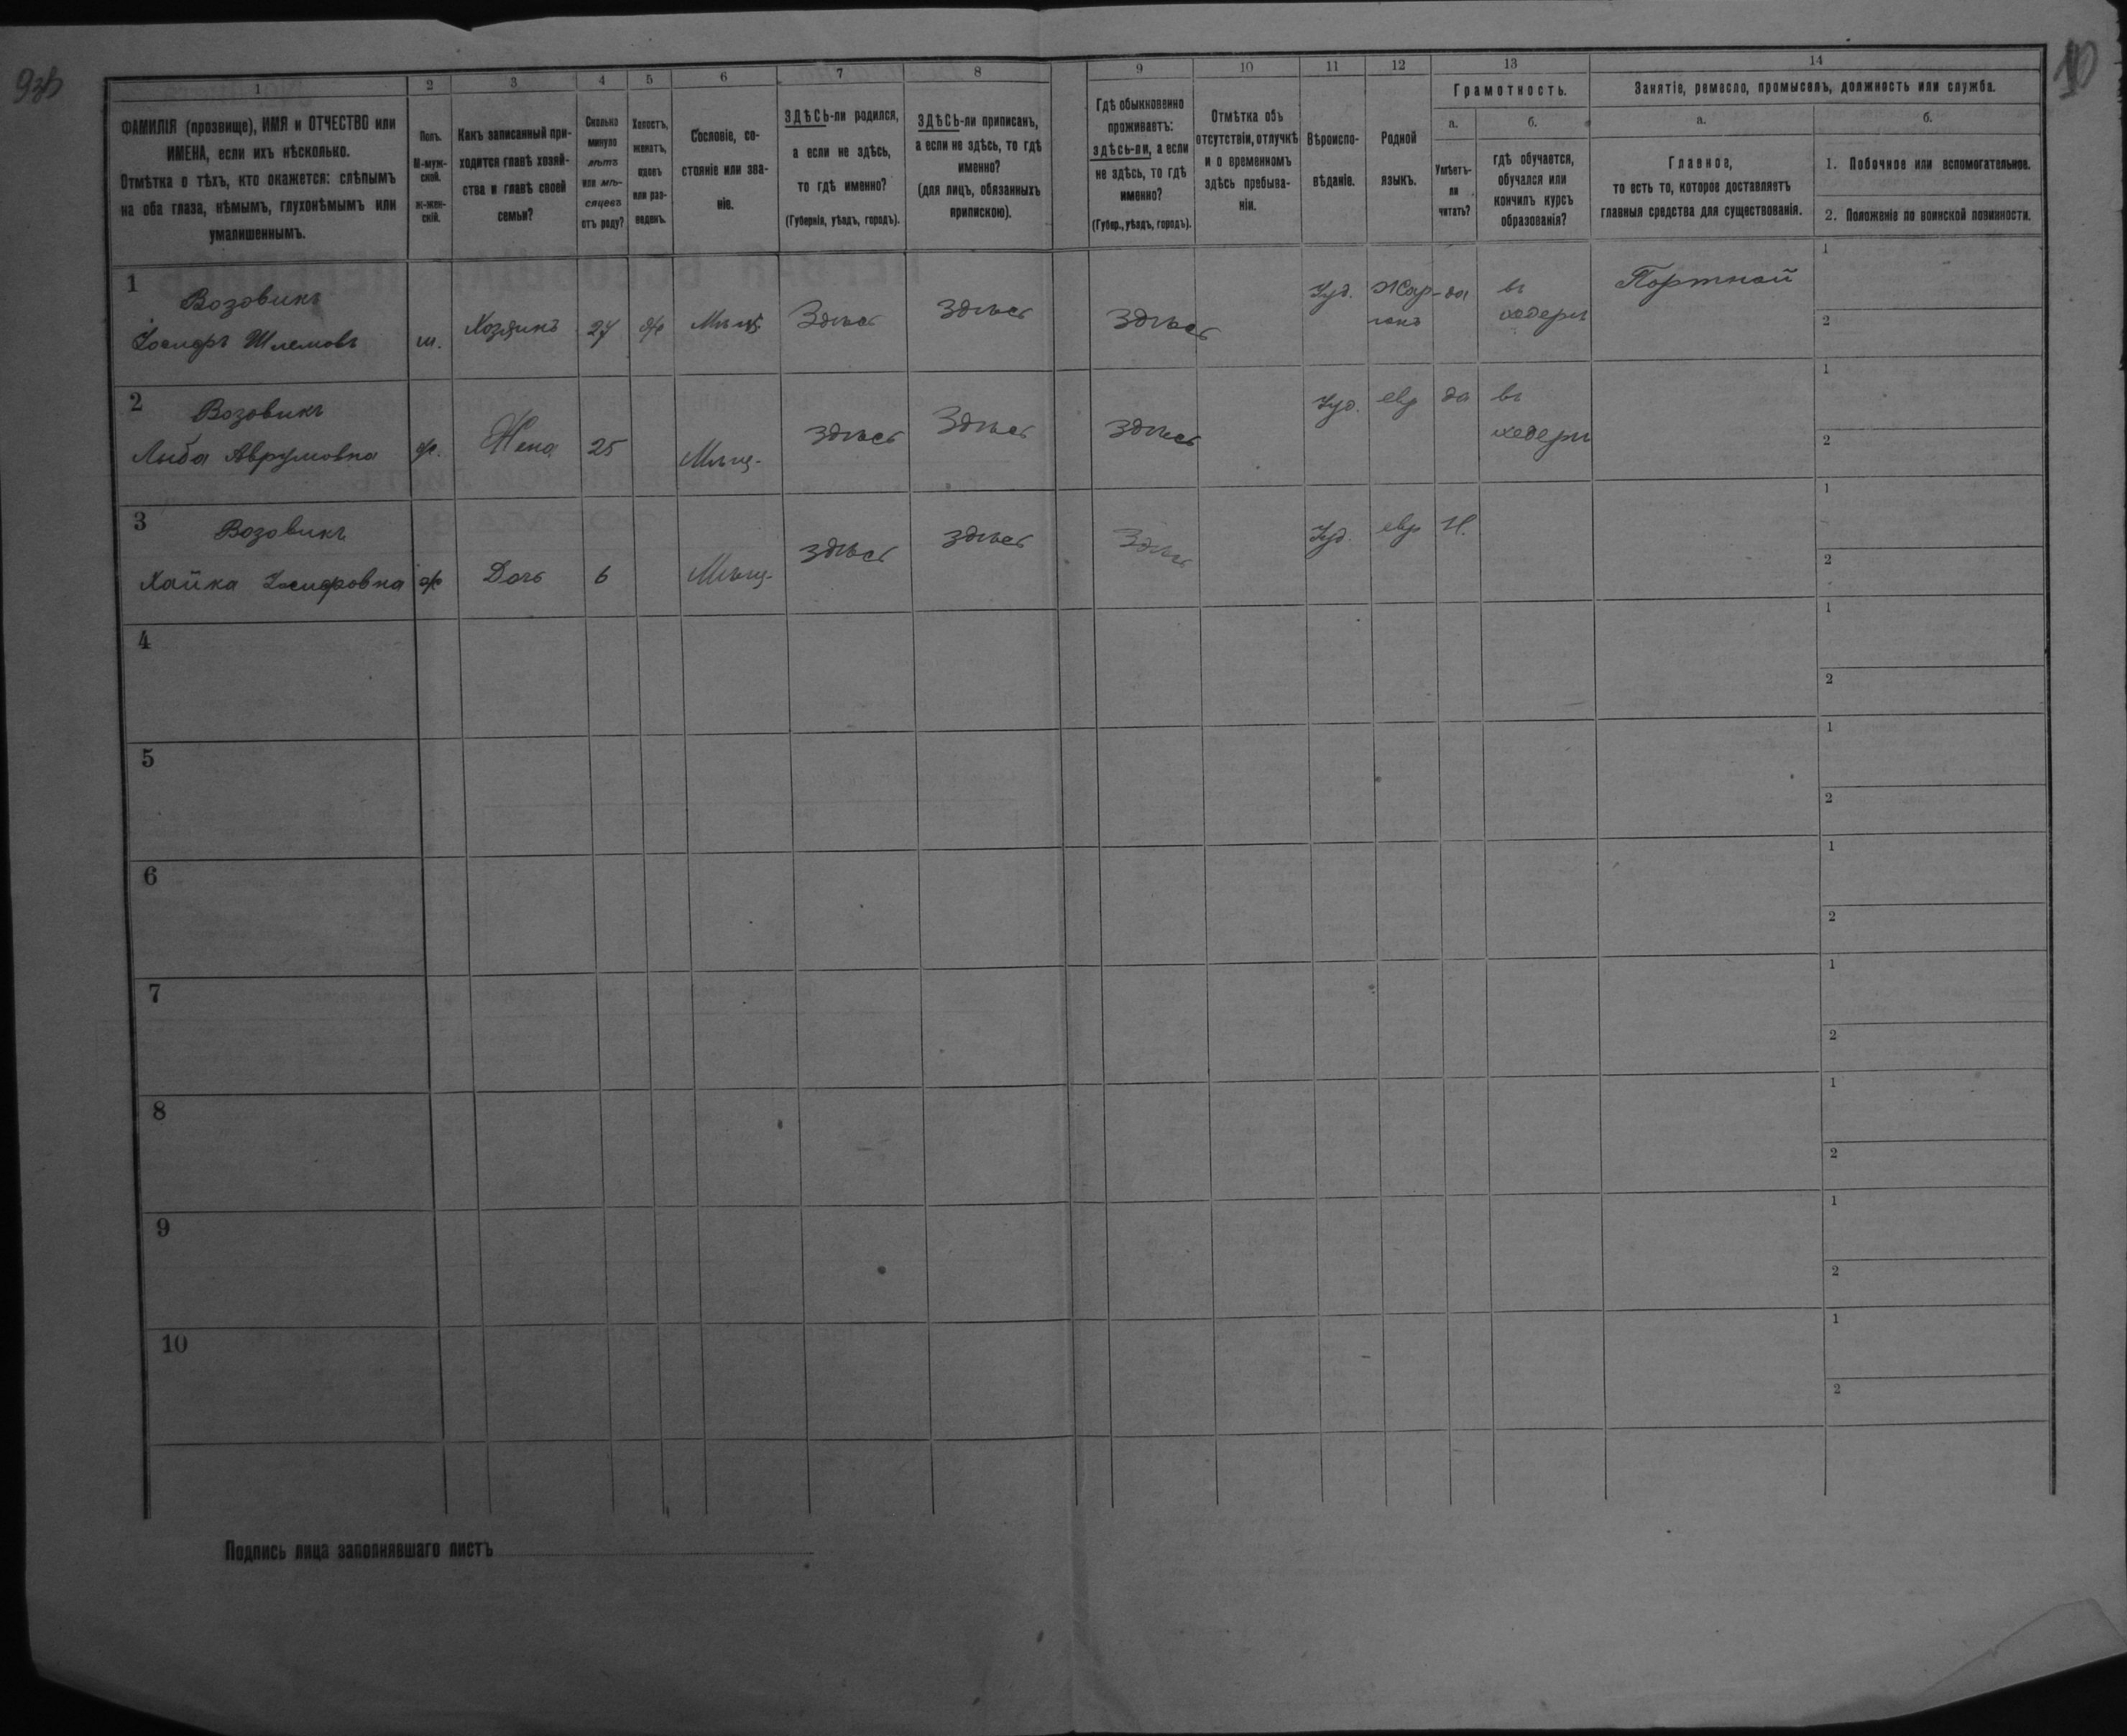 93
10
1
2
3
4
5
6
7
8
9
10
11
12
13
14
ФАМИЛІЯ (прозвище), ИМЯ и ОТЧЕСТВО или
ИМЕНА, если ихъ нѣсколько.
Отмѣтка о тѣхъ, кто окажется: слѣпымъ
на оба глаза, нѣмымъ, глухонѣмымъ или
умалишеннымъ.
Полъ.
М-муж-
ской.
ж-жен-
скій.
Какъ записанный при-
ходится главѣ хозяй-
ства и главѣ своей
семьи?
Сколько
минуло
лѣтъ
или мѣ-
сяцевъ
отъ роду?
Холостъ,
женатъ,
вдовъ
или раз-
веденъ.
Сословіе, со-
стояніе или зва-
ніе.
ЗДѢСЬ-ли родился,
а если не здѣсь,
то гдѣ именно?
(Губернія, уѣздъ, городъ).
ЗДѢСЬ-ли приписанъ,
а если не здѣсь, то гдѣ
именно?
(для лицъ, обязанныхъ
припискою).
Гдѣ обыкновенно
проживаетъ:
здѣсь-ли, а если
не здѣсь, то гдѣ
именно?
(Губер., уѣздъ, городъ).
Отмѣтка объ
отсутствіи, отлучкѣ
и о временномъ
здѣсь пребыва-
ніи.
Вѣроиспо-
вѣданіе.
Родной
языкъ.
Грамотность.
а.
Умѣетъ-
ли
читать?
б.
гдѣ обучается,
обучался или
кончилъ курсъ
образованія?
Занятіе, ремесло, промыселъ, должность или служба.
а.
Главное,
то есть то, которое доставляетъ
главныя средства для существованія.
б.
1. Побочное или вспомогательное.
2. Положеніе по воинской повинности.
1
Возовикъ
Іосифъ Шлемовъ
м.
Хозяинъ
27
ж
Мѣщ.
Здѣсь
Здѣсь
Здѣсь
Іуд.
Жар-
гонъ
да
въ
хедерѣ
Портной
1
2
2
Возовикъ
Лыба Аврумовна
ж.
Жена
25
Мѣщ.
Здѣсь
Здѣсь
Здѣсь
Іуд.
евр
да
въ
хедерѣ
1
2
3
Возовикъ
Хайка Іосифовна
ж
Дочь
6
Мѣщ.
здѣсь
здѣсь
Здѣсь
Іуд.
евр
Н.
1
2
4
1
2
5
1
2
6
1
2
7
1
2
8
1
2
9
1
2
10
1
2
Подпись лица заполнявшаго листъ